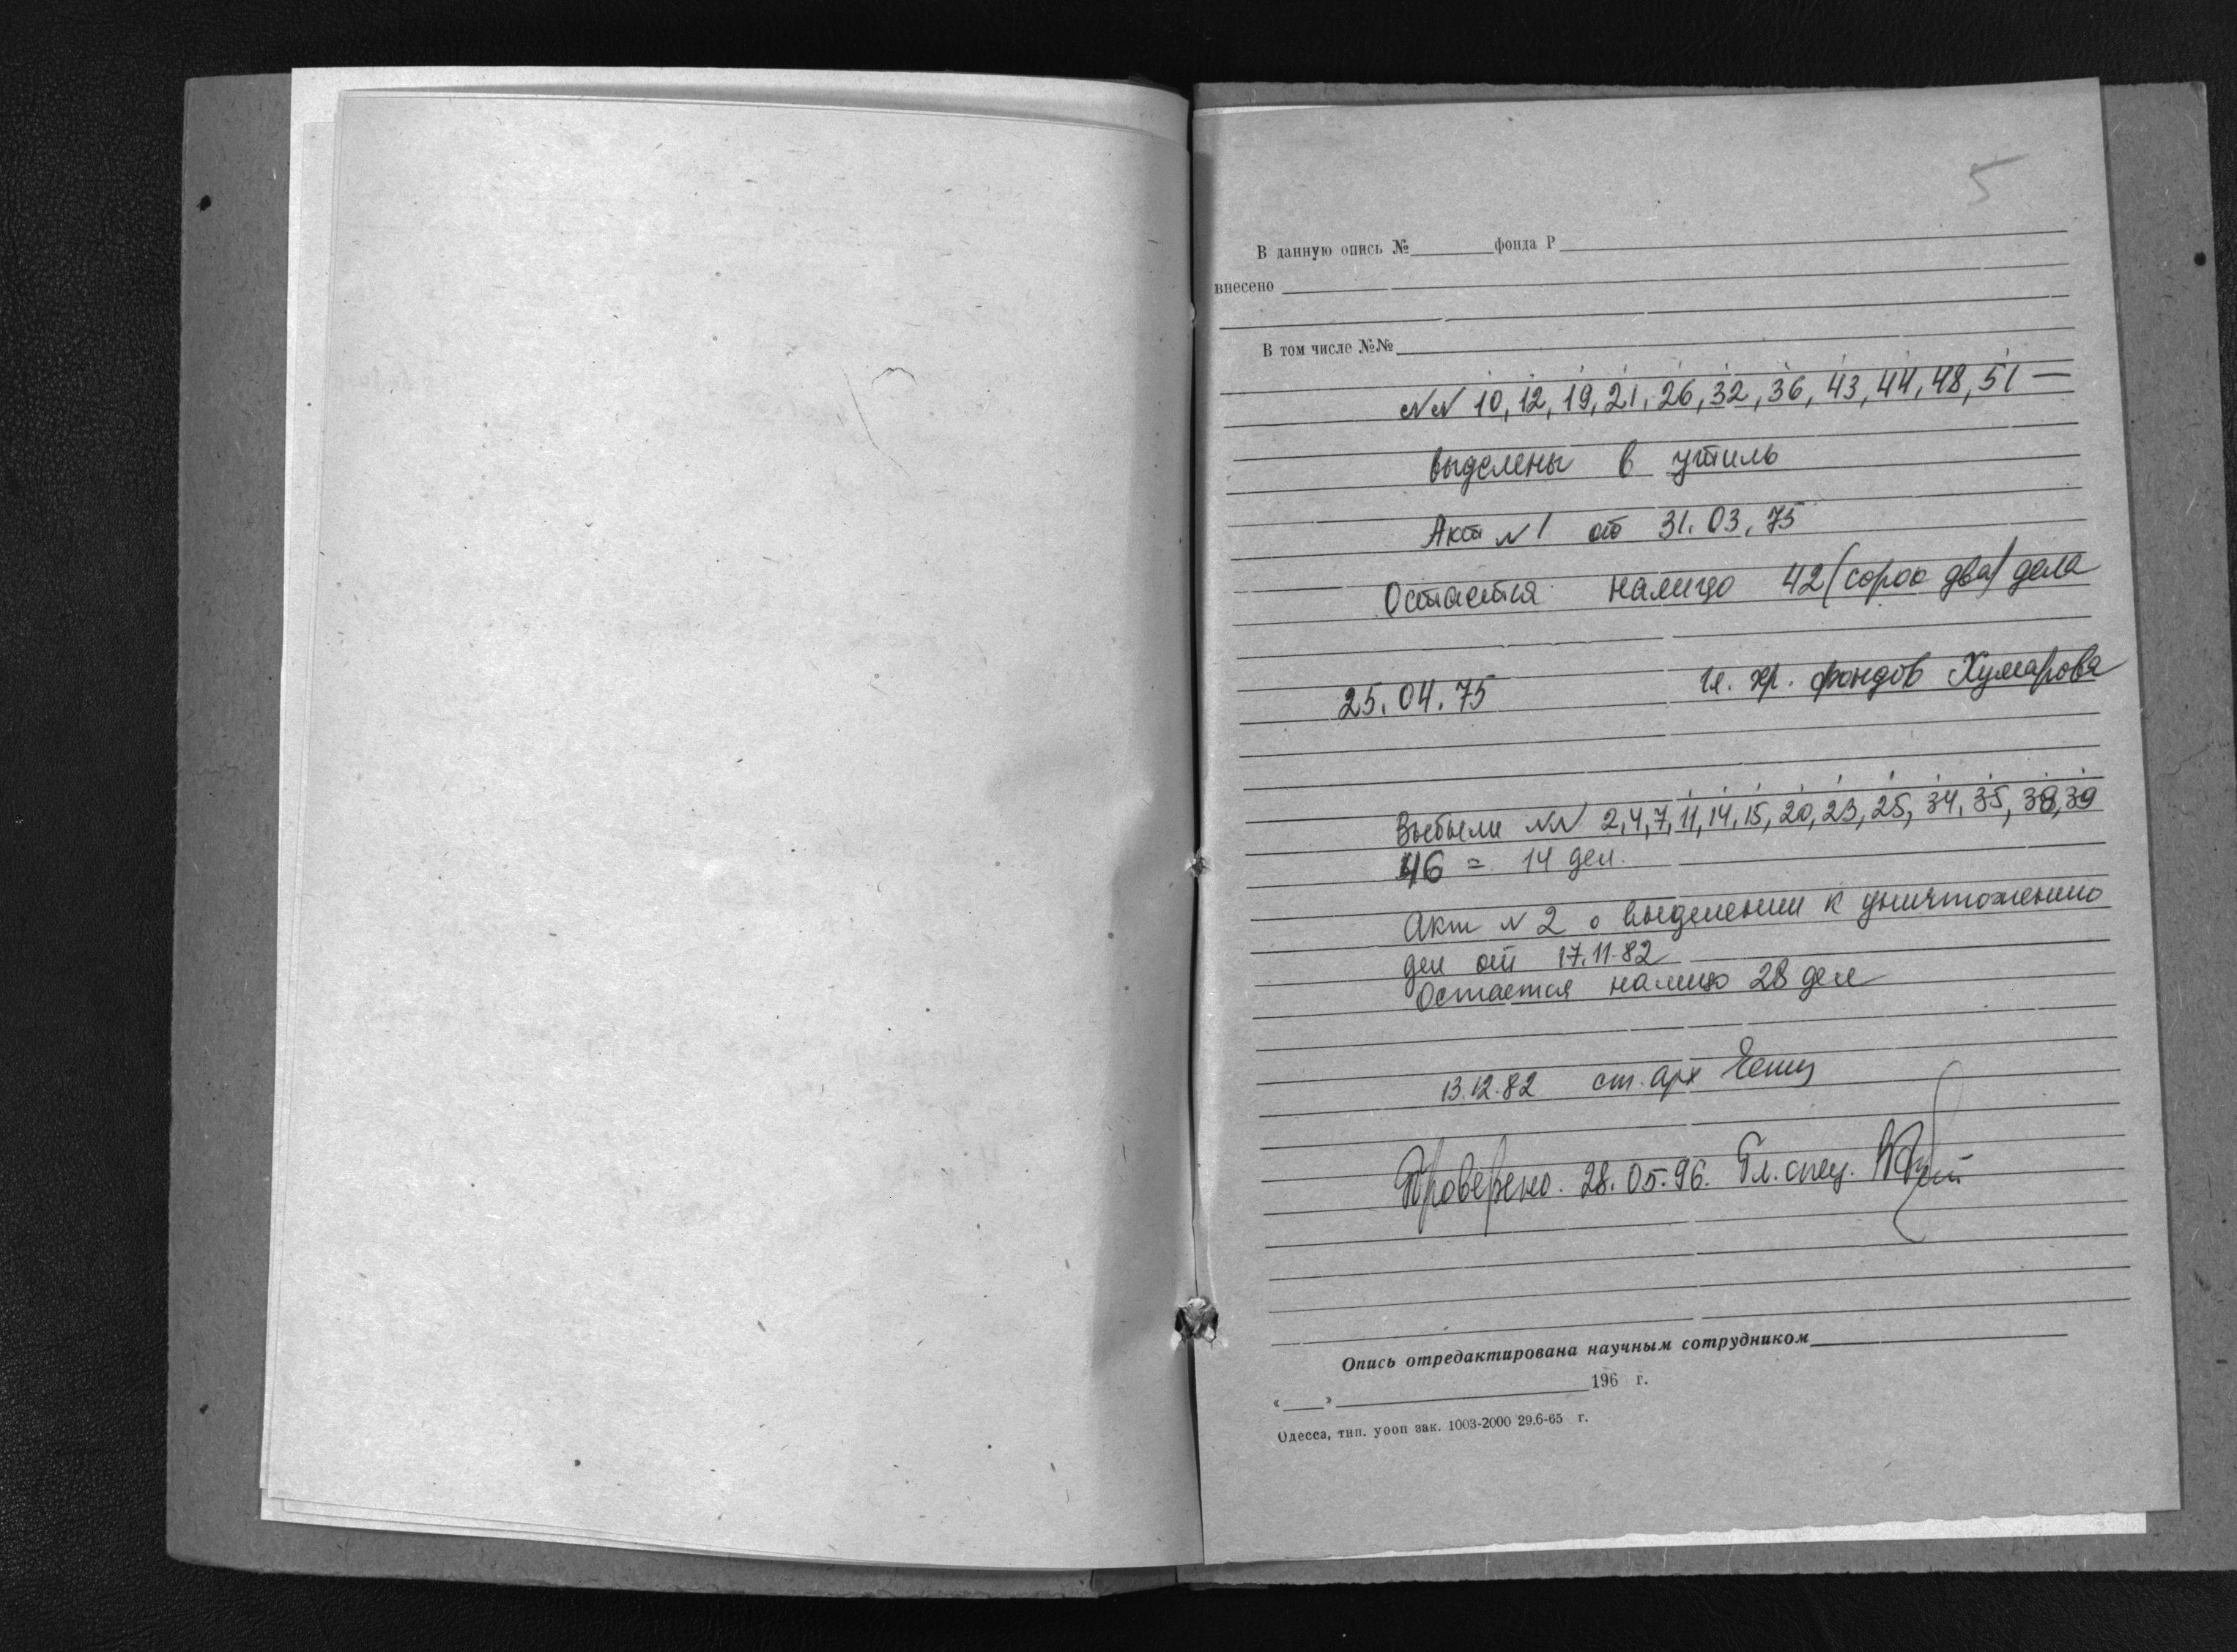 5
В данную опись № фонда Р
внесено
В том числе №№
NN 10, 12, 19, 21, 26, 32, 36, 43, 44, 48, 51 —
выделены в утиль
Акт N 1 от 31.03.75
Остается налицо 42 (сорок два) дела
25.04.75 хр. фондов Хумарова
Выбыли NN 2, 4, 7, 11, 14, 15, 20, 23, 25, 34, 35, 38, 39
46 = 14 дел.
Акт N 2 о выделении к уничтожению
дел от 17.11.82
Остается налицо 28 дел
13.12.82 ст. арх
Проверено. 28.05.96. Гл. спец.
Опись отредактирована научным сотрудником
« » 196 г.
Одесса, тип. уооп зак. 1003-2000 29.6-65 г.